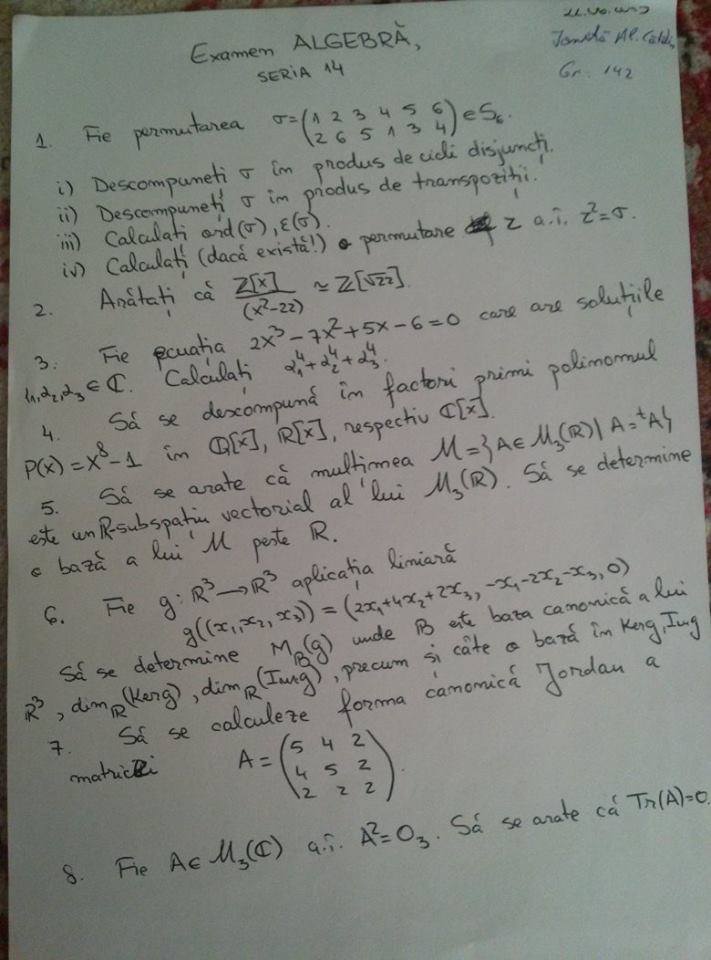 Examen ALGEBRĂ,
SERIA 14
Gr. 142
1. Fie permutarea σ=(1 2 3 4 5 6 / 2 6 5 1 3 4) ∈ S₆.
i) Descompuneți σ în produs de cicli disjuncți.
ii) Descompuneți σ în produs de transpoziții.
iii) Calculați ord(σ), ε(σ).
iv) Calculați (dacă există!) o permutare z a.î. z²=σ.
2. Arătați că Z[x]/(x²-22) ≃ Z[√22].
3. Fie ecuația 2x³-7x²+5x-6=0 care are soluțiile
α₁,α₂,α₃ ∈ C. Calculați α₁⁴+α₂⁴+α₃⁴.
4. Să se descompună în factori primi polinomul
P(x)=x⁸-1 în Q[x], R[x], respectiv C[x].
5. Să se arate că mulțimea M={A∈M₃(R) | A=ᵗA}
este un R-subspațiu vectorial al lui M₃(R). Să se determine
o bază a lui M peste R.
6. Fie g: R³→R³ aplicația liniară
g((x₁,x₂,x₃)) = (2x₁+4x₂+2x₃, -x₁-2x₂-x₃, 0)
Să se determine M_B(g) unde B este baza canonică a lui
R³, dim_R(Ker g), dim_R(Im g), precum și câte o bază în Ker g, Im g
7. Să se calculeze forma canonică Jordan a
matricei A=(5 4 2 / 4 5 2 / 2 2 2).
8. Fie A∈M₃(C) a.î. A²=O₃. Să se arate că Tr(A)=0.